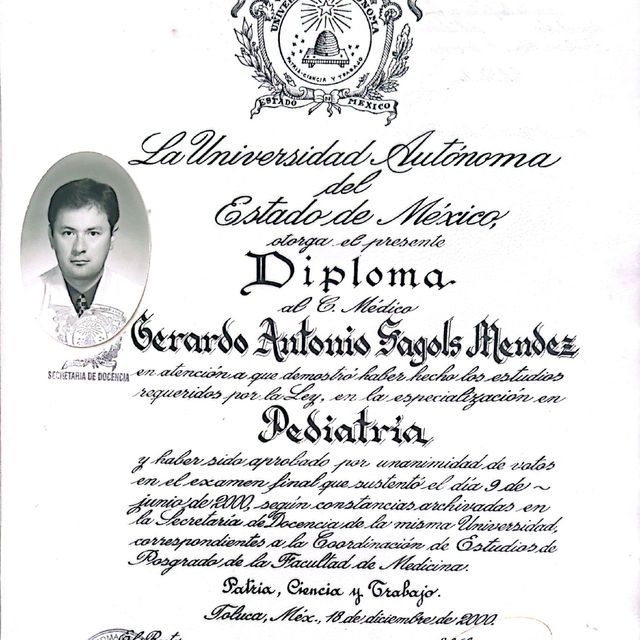 UNIVERSIDAD AUTÓNOMA
PATRIA, CIENCIA Y TRABAJO
ESTADO DE MÉXICO
La Universidad Autónoma
del
Estado de México,
otorga el presente
Diploma
al C. Médico
Gerardo Antonio Sagols Mendez
en atención a que demostró haber hecho los estudios
requeridos por la Ley, en la especialización en
Pediatría
y haber sido aprobado por unanimidad de votos
en el examen final que sustentó el día 9 de ~
junio de 2000, según constancias archivadas en
la Secretaría de Docencia de la misma Universidad,
correspondientes a la Coordinación de Estudios de
Posgrado de la Facultad de Medicina.
Patria, Ciencia y Trabajo.
Toluca, Méx., 18 de diciembre de 2000.
SECRETARIA DE DOCENCIA
El